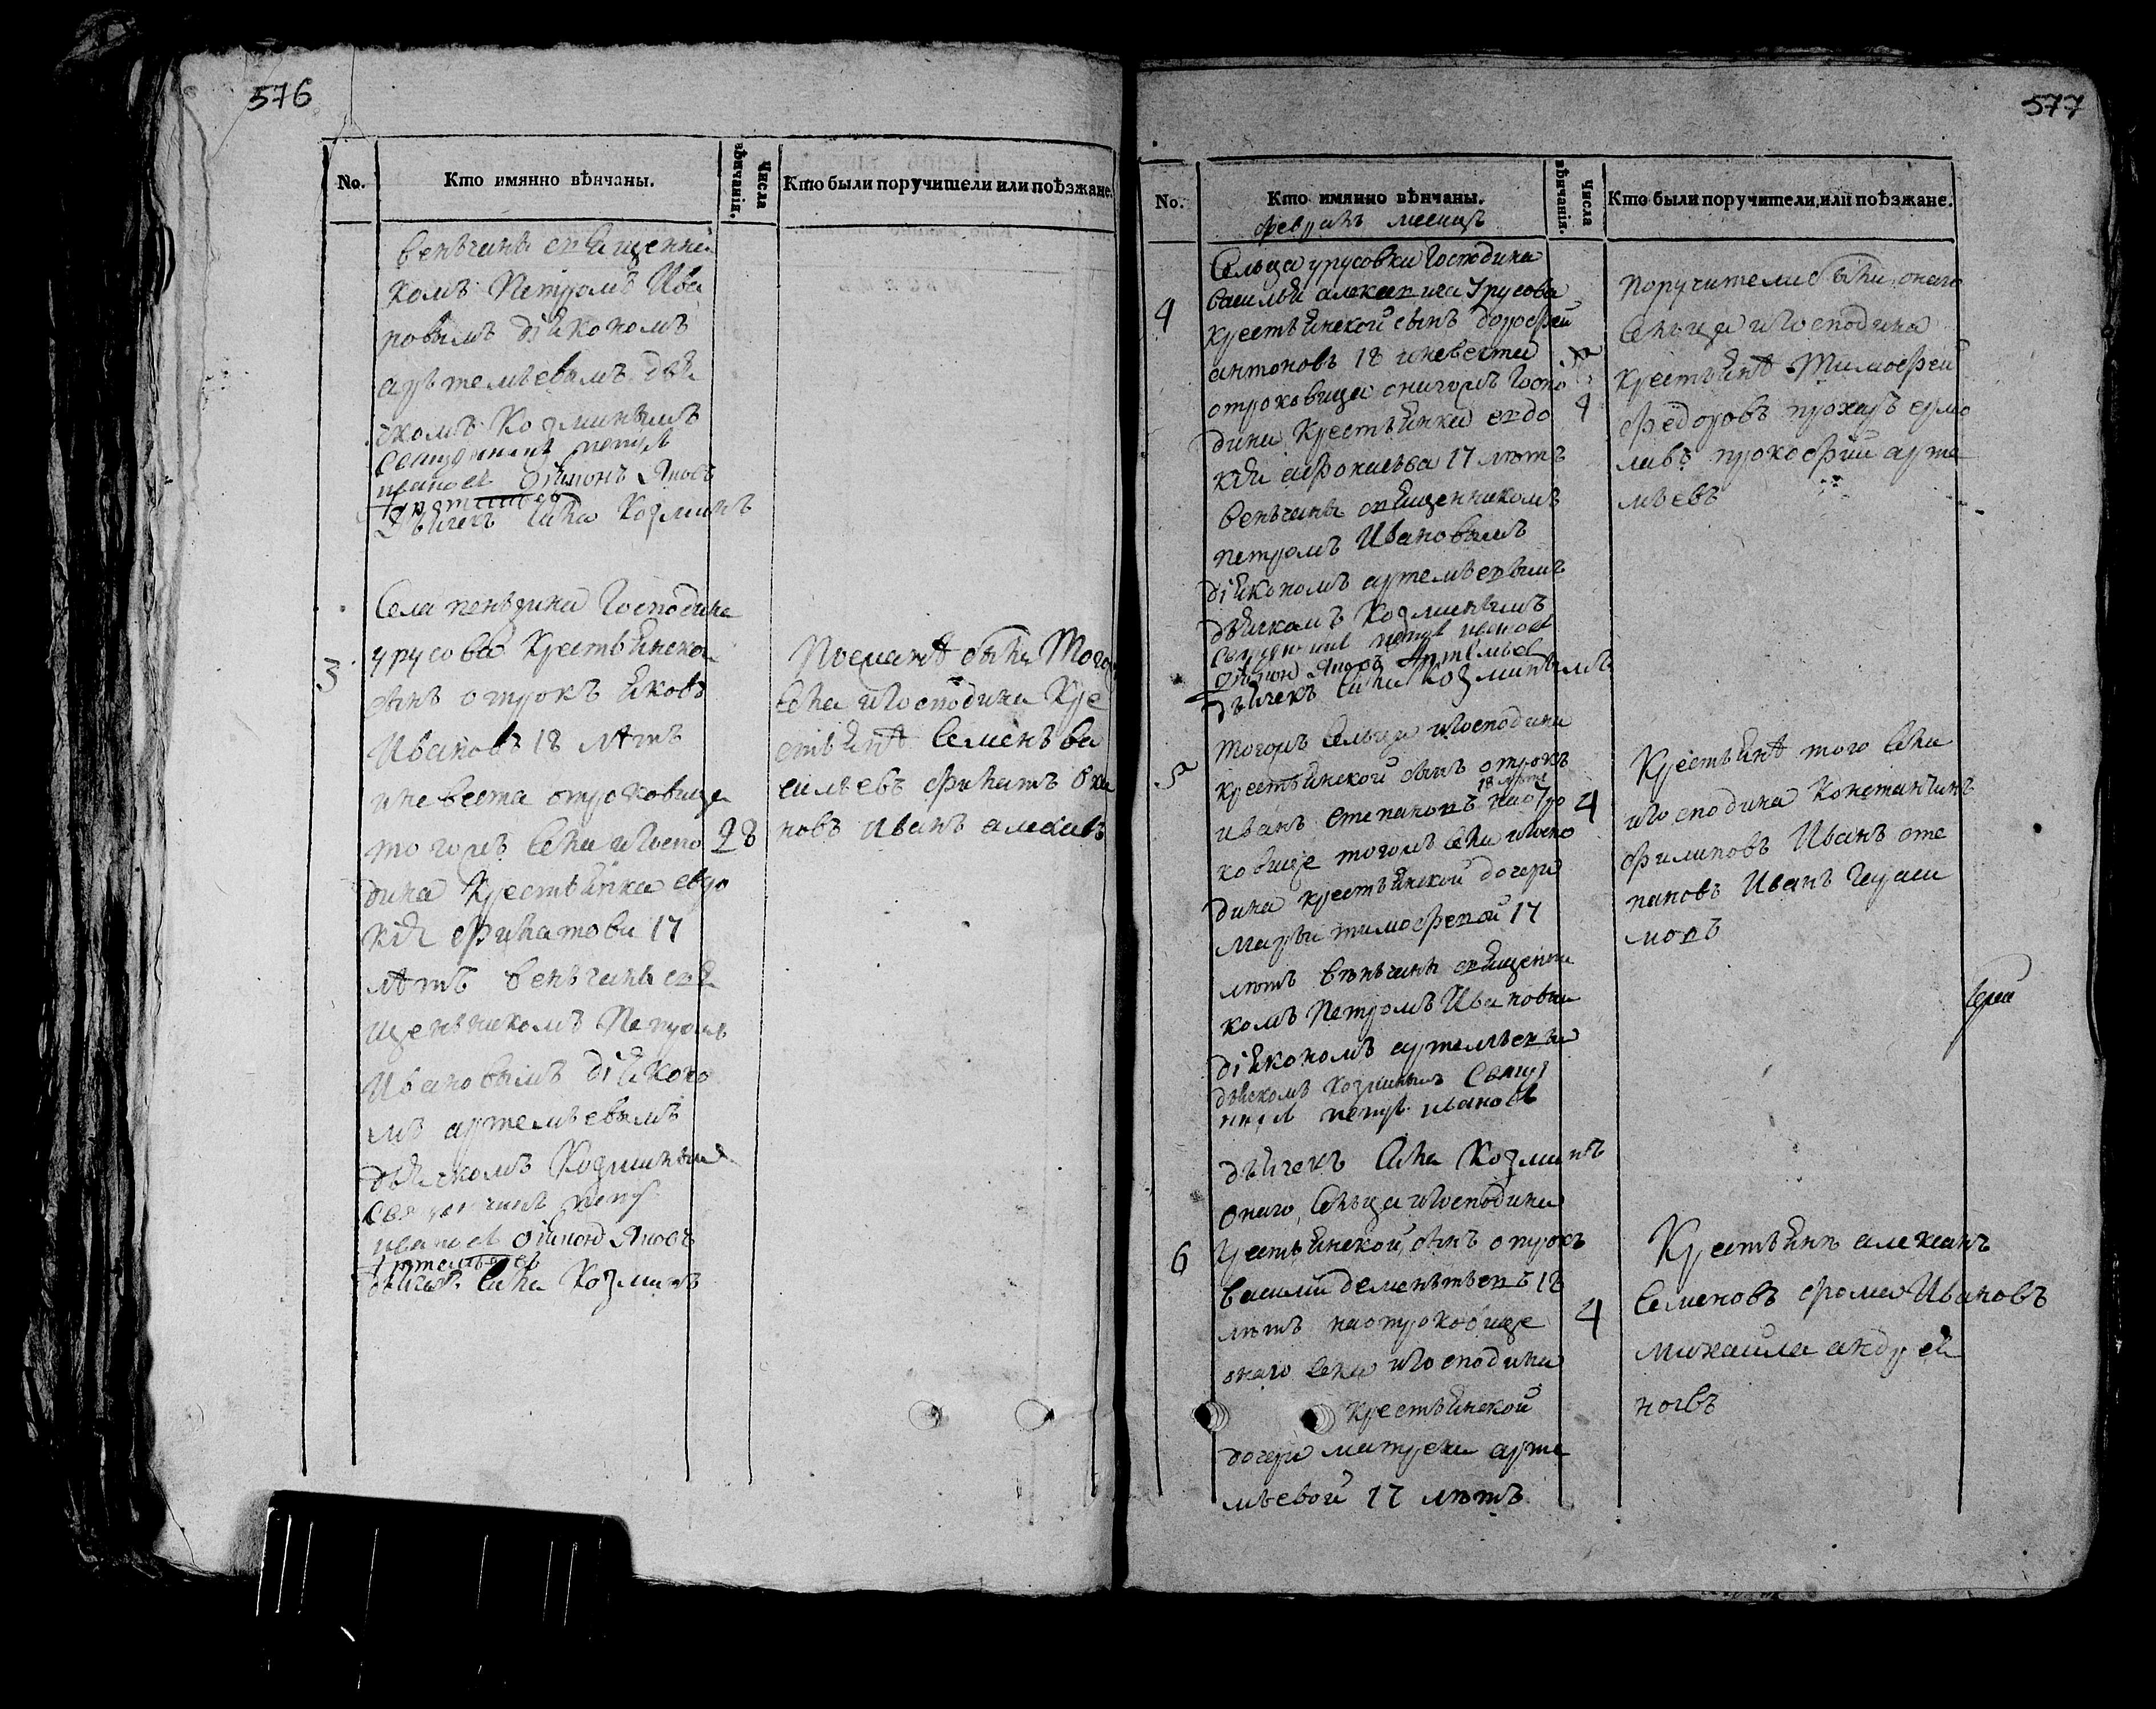 576
No.
Кто имянно вѣнчаны.
Числа вѣнчанія.
Кто были поручители или поѣзжане.
венъчаны священни
комъ Петромъ Ива
новымъ діякономъ
артемьевымъ дья
чкомъ Козминымъ
священникъ петръ
ивановъ діяконъ Яковъ
Артемьевъ
Дьячекъ Сила Козминъ
Села пеньзина Господина
3
урусова Крестьянской
сынъ отрокъ яковъ
Ивановъ 18 лѣтъ
и невеста отроковица
тогожъ села и Госпо
28
дина Крестьянка евдо
кія филатова 17
лѣтъ венъчаны свя
щенъникомъ Петромъ
Ивановымъ діяконо
мъ артемьевымъ
дьячкомъ Козминымъ
Священникъ петръ
ивановъ діяконъ Яковъ
Артемьевъ
дьячекъ Сила Козминъ
Поежанѣ были Того
села и Господина Кре
стьянѣ Семенъ ва
сильевъ филатъ
новъ Иванъ
577
No.
Кто имянно вѣнчаны.
Числа вѣнчанія.
Кто были поручители или поѣзжане.
февраль месецъ
Сельца урусовки Господина
4
василья Урусова
крестьянской сынъ дорофей
антоновъ 18 и невеста
отроковица онагожъ Госпо
4
дина Крестьянка евдо
кія афонасьева 17 лѣтъ
венъчаны священникомъ
петромъ Ивановымъ
діякономъ артемьевымъ
дьячкомъ Козминымъ
священникъ петръ ивановъ
діяконъ Яковъ Артемьевъ
дьячекъ Сила Козминымъ
поручители были онаго
сельца и Господина
крестьянѣ Тимофей
федоровъ прохоръ ермо
лавъ прокофий арте
мьевъ
тогожъ сельца и Господина
5
крестьянской сынъ отрокъ
18 лѣтъ
иванъ степановъ на отро
4
ковице тогожъ села и Госпо
дина крестьянской дочери
марьи тимофевой 17
лѣтъ венъчаны священни
комъ Петромъ Ивановы
діякономъ артемьевы
дьячкомъ Козминымъ Свящ
никъ петръ ивановъ
дьячекъ Сила Козминъ
Крестьянѣ того села
и Господина Констанътинъ
филиповъ Иванъ сте
пановъ Иванъ Гераси
мовъ
онаго сельца и Господина
6
Крестьянской сынъ отрокъ
василий дементьевъ 18
4
лѣтъ на отроковице
онаго села и Господина
крестьянской
дочери матрены арте
мьевой 17 лѣтъ
Крестьянѣ
Семеновъ фома Ивановъ
михаила андрея
новъ